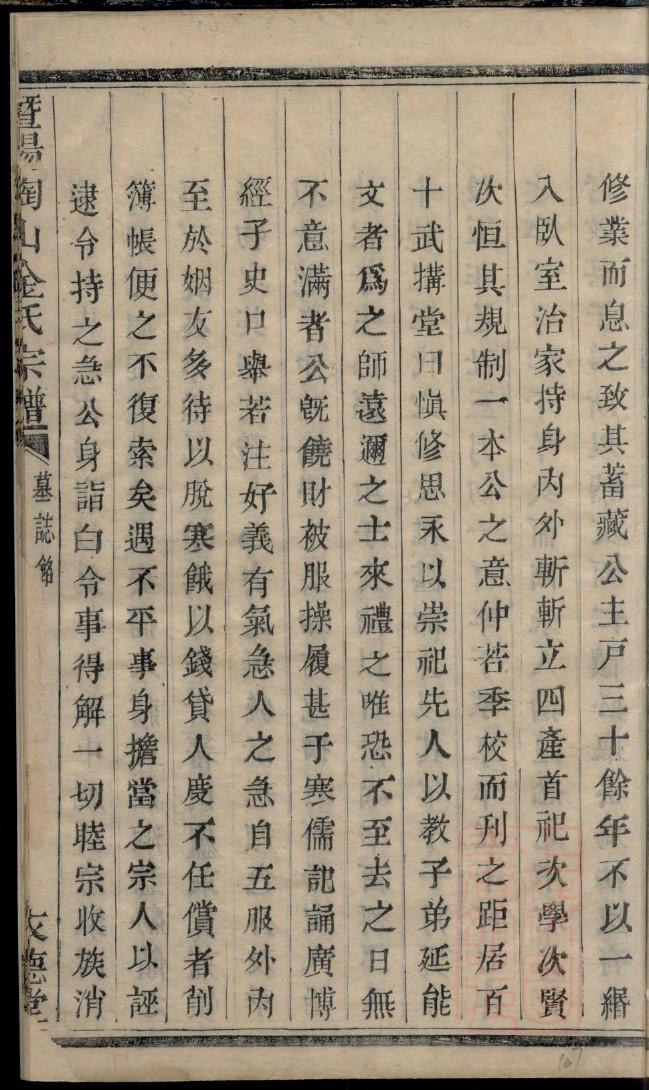 修業而息之致其蓄藏公主戸三十餘年不以一緡
入臥室治家持身內外斬斬立四產首祀次學次賢
次恒其規制一本公之意仲若季校而刊之距居百
十武搆堂曰愼修思永以崇祀先人以教子弟延能
文者爲之師遠邇之士來禮之唯恐不至去之日無
不意滿者公旣饒財被服操履甚于寒儒記誦廣博
經子史口舉若注好義有氣急人之急自五服外內
至於姻友多待以脫寒餓以錢貸人度不任償者削
簿帳便之不復索矣遇不平事身擔當之宗人以誣
逮令持之急公身詣白令事得解一切睦宗收族消
暨陽陶山金氏宗譜
墓誌銘
文德堂
167